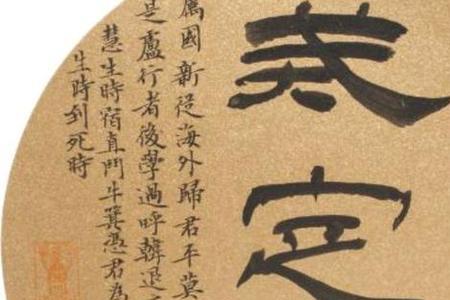 戒定
屬國新從海外歸君平莫
是盧行者後學過呼韓退
慧生時宿直鬥牛箕憑君為
生時到死時